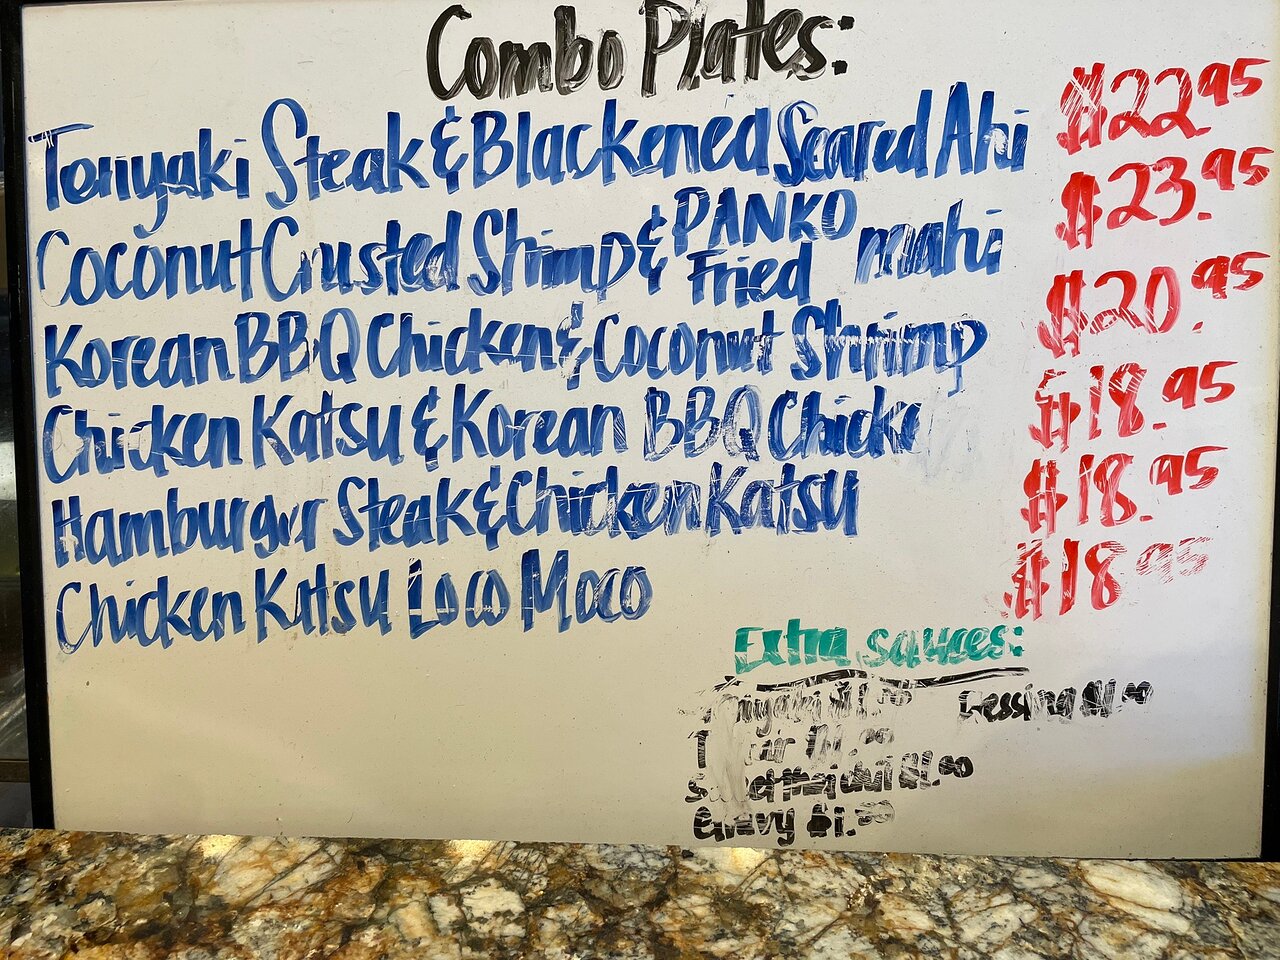 Combo Plates:
Teriyaki Steak & Blackened Seared Ahi $22.95
Coconut Crusted Shrimp & PANKO Fried mahi $23.95
Korean BBQ Chicken & Coconut Shrimp $20.95
Chicken Katsu & Korean BBQ Chicke $18.95
Hamburger Steak & Chicken Katsu $18.95
Chicken Katsu Loco Moco $18.95
Extra sauces:
$1.00 $1.00
$1.00
$1.00
Gravy $1.00